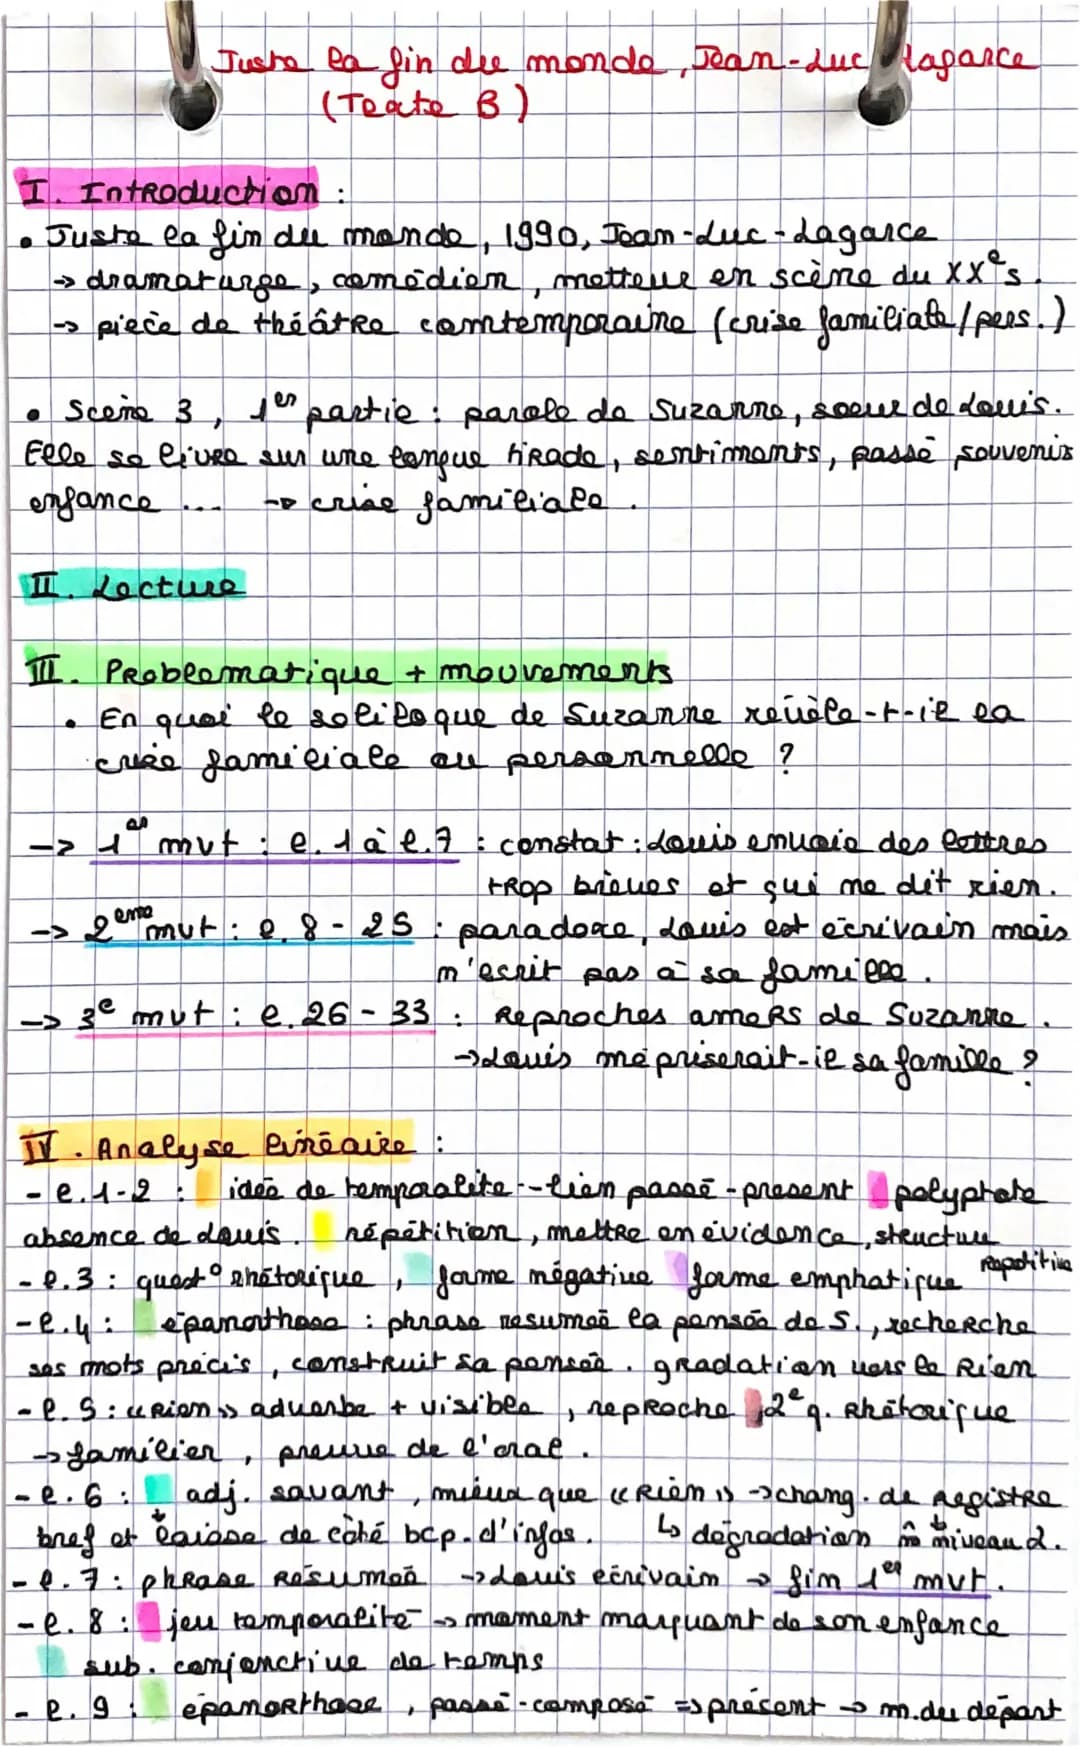 Juste la fin du monde, Jean-Luc Lagarce
(Texte B)
I. Introduction :
• Juste la fin du monde, 1990, Jean-Luc-Lagarce
→ dramaturge, comédien, metteur en scène du XXe s.
→ pièce de théâtre comtemporaine (crise familiale/pers.)
• Scène 3, 1er partie : parole de Suzanne, soeur de Louis.
Elle se livre sur une longue tirade, sentiments, passé souvenir
enfance ... → crise familiale.
II. Lecture
III. Problématique + mouvements
• En quoi le soliloque de Suzanne révèle-t-il la
crise familiale ou personnelle ?
→ 1er mvt : l. 1 à l. 7 : constat : Louis envoie des lettres
trop brèves et qui ne dit rien.
→ 2ème mvt : l. 8 - 25 : paradoxe, Louis est écrivain mais
n'écrit pas à sa famille.
→ 3e mvt : l. 26 - 33 : Reproches amers de Suzanne.
→ Louis mépriserait-il sa famille ?
IV. Analyse linéaire :
- l. 1-2 : idée de temporalité -- lien passé - présent polyptote
absence de Louis. répétition, mettre en évidence, structure
répétitive
- l. 3 : quest° rhétorique, forme négative forme emphatique
- l. 4 : épanorthose : phrase résumée la pensée de S., recherche
ses mots précis, construit sa pensée. gradation vers le Rien
- l. 5 : « Rien » adverbe + visible, reproche 2e q. Rhétorique
→ familier, preuve de l'oral.
- l. 6 : adj. savant, mieux que « Rien » → chang. de registre
bref et laisse de côté bcp. d'infos. ↳ dégradation niveau 2.
- l. 7 : phrase résumée → Louis écrivain → fin 1er mvt.
- l. 8 : jeu temporalité → moment marquant de son enfance
sub. conjonctive de temps
- l. 9 : épanorthose, passé-composé ⇒ présent → m. du départ